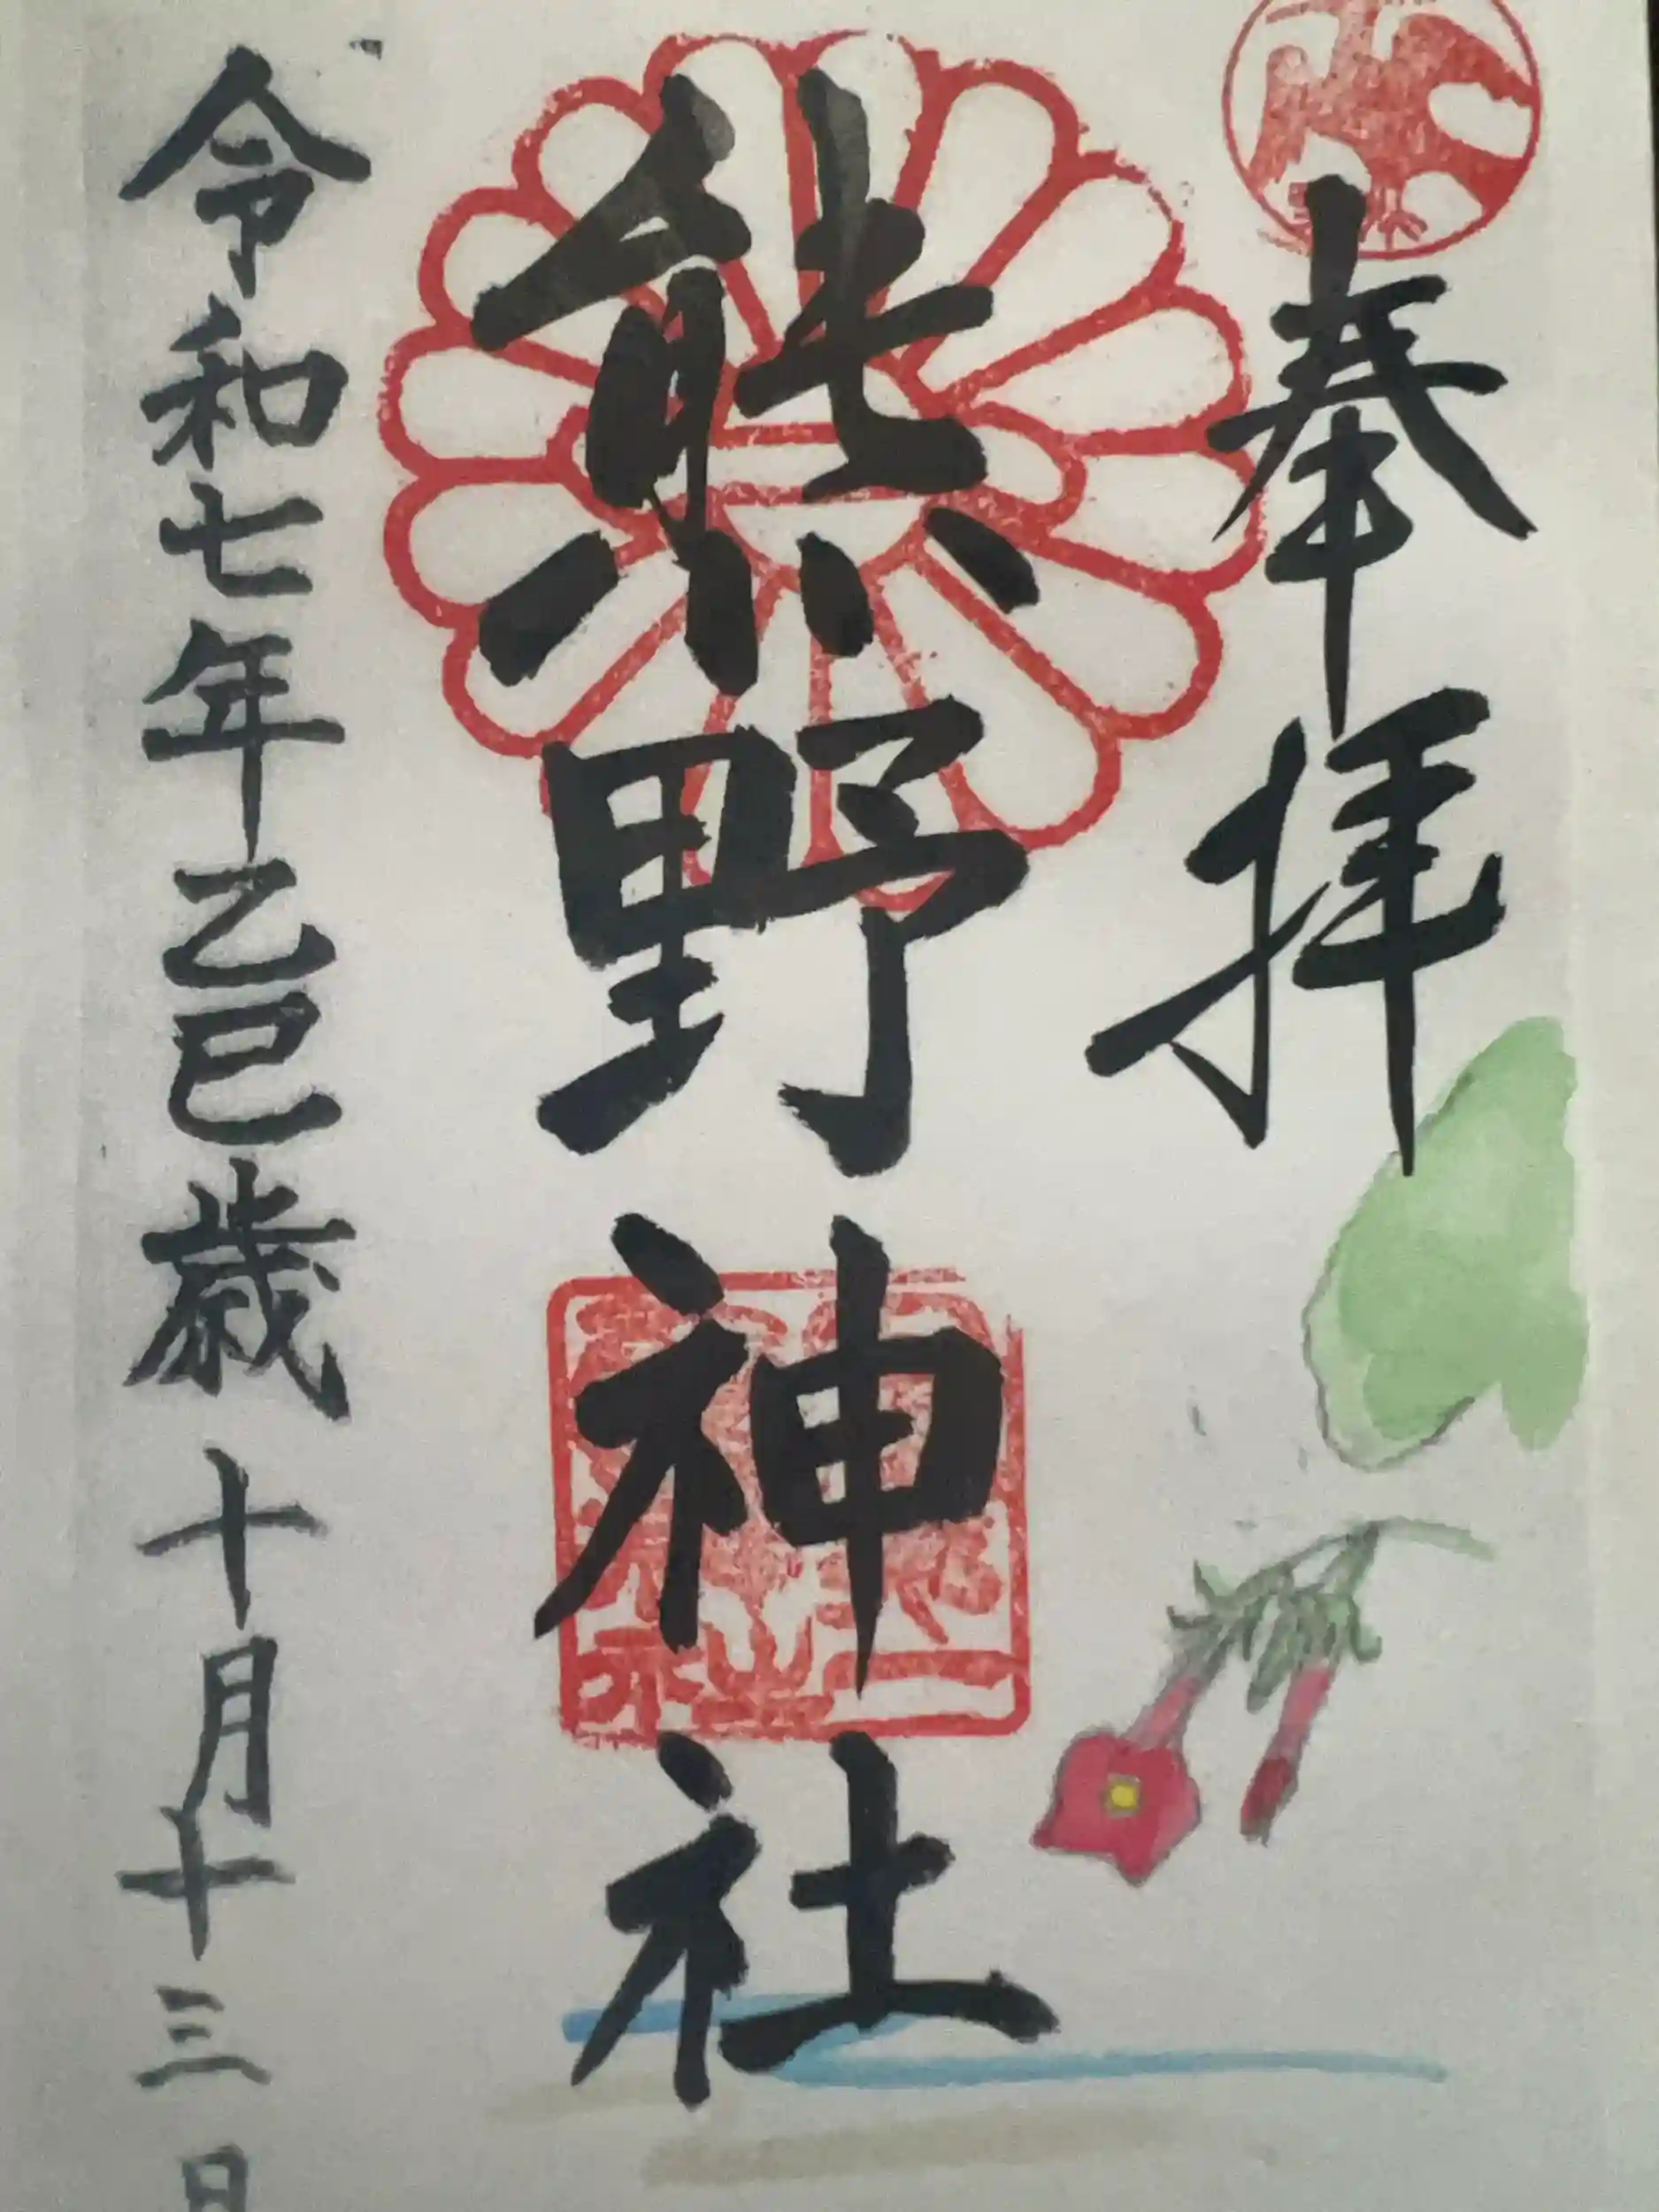 奉拝
熊野神社
令和七年乙巳歳十月十三日